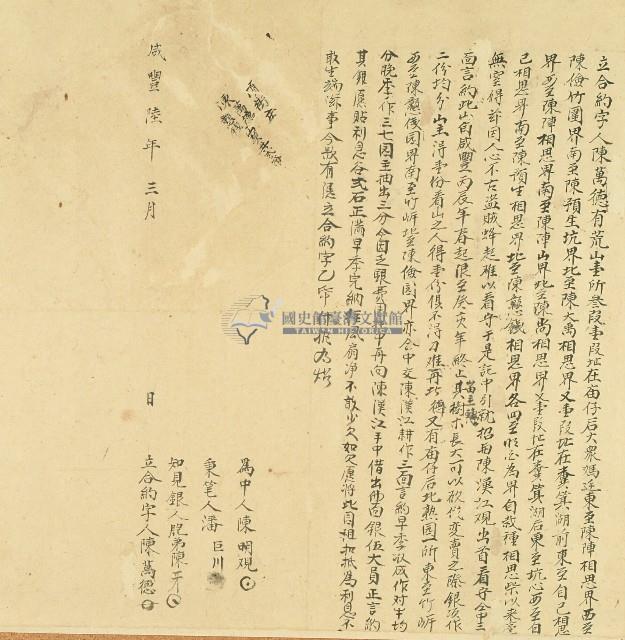 立合約字人陳萬德有荒山壹所叁段壹段址在面仔后大眾媽廷東至陳陣相思界西至
陳儉竹圍界南至陳預生坑界北至陳大禹相思界又壹段址在糞箕湖前東至自己相思
界西至陳陣相思界南至陳陣山界北至陳尚相思界又壹段址在糞箕湖后東至坑心西至自
已相思界南至陳預生相思界北至陳 相思界各四至明白為界自栽種相思柴以來
無空得 因人心不古盜賊蜂起難以看守于是託中引就招與陳漢江观出首看守仝中三
面言約此山自咸豐丙辰年春起限至癸亥年終止其樹木長大可以砍做變賣之際銀項作
二份均分山主得壹份看山之人得壹份俱不得刁难再 又有面仔后北熱園一所東至竹屏
西至陳 園界南至竹屏北至陳儉園界亦仝中交陳漢江耕作三面言約早季收成作對半均
分晚季作三七园主抽出三分今因乏銀費用 中再向陳漢江手中借出佛面銀伍大員正言約
其銀愿貼利息谷弍石正滿早季完納 風扇凈不敢少欠如欠愿將此园租扣抵為利息不
敢生端滋事今欲有憑立合約字乙帋付执為炤
咸豐陸年三月　日
為中人陳明观
秉筆人潘巨川
知見銀人胞弟陳
立合約字人陳萬德
國史館臺灣文獻館
TAIWAN HISTORICA